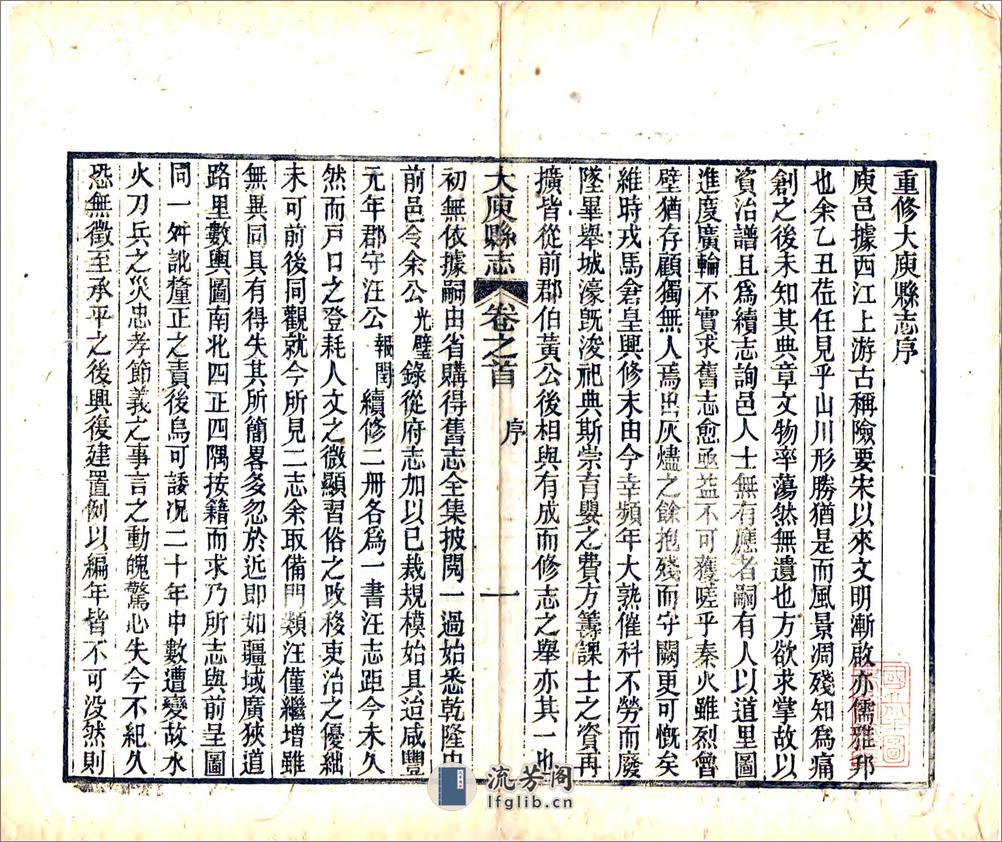 重修大庾縣志序
庾邑據西江上游古稱險要宋以來文明漸啟亦儒雅邦
也余乙丑莅任見乎山川形勝猶是而風景凋殘知為痛
創之後未知其典章文物率蕩然無遺也方欲求掌故以
資治譜且為續志詢邑人士無有應者嗣有人以道里圖
進度廣輪不實求舊志愈亟益不可獲嗟乎秦火雖烈魯
壁猶存顧獨無人焉出灰燼之餘抱殘而守闕更可慨矣
維時戎馬倉皇興修末由今幸頻年大熟催科不勞而廢
墜畢舉城濠既浚祀典斯崇育嬰之費方籌課士之資再
擴皆從前郡伯黃公後相與有成而修志之舉亦其一也
大庾縣志 卷之首 序 一
初無依據嗣由省購得舊志全集披閱一過始悉乾隆中
前邑令余公光璧錄從府志加以已裁規模始具迨咸豐
元年郡守汪公報閏續修二冊各為一書汪志距今未久
然而戶口之登耗人文之微顯習俗之改移吏治之優絀
未可前後同觀就今所見二志余取備門類汪僅繼增雖
無異同具有得失其所簡畧多忽於近即如疆域廣狹道
路里數輿圖南北四正四隅按籍而求乃所志與前呈圖
同一舛訛釐正之責後烏可諉况二十年中數遭變故水
火刀兵之災忠孝節義之事言之動魄驚心失今不紀久
恐無徵至承平之後興復建置例以編年皆不可没然則
流芳阁
lfglib.cn